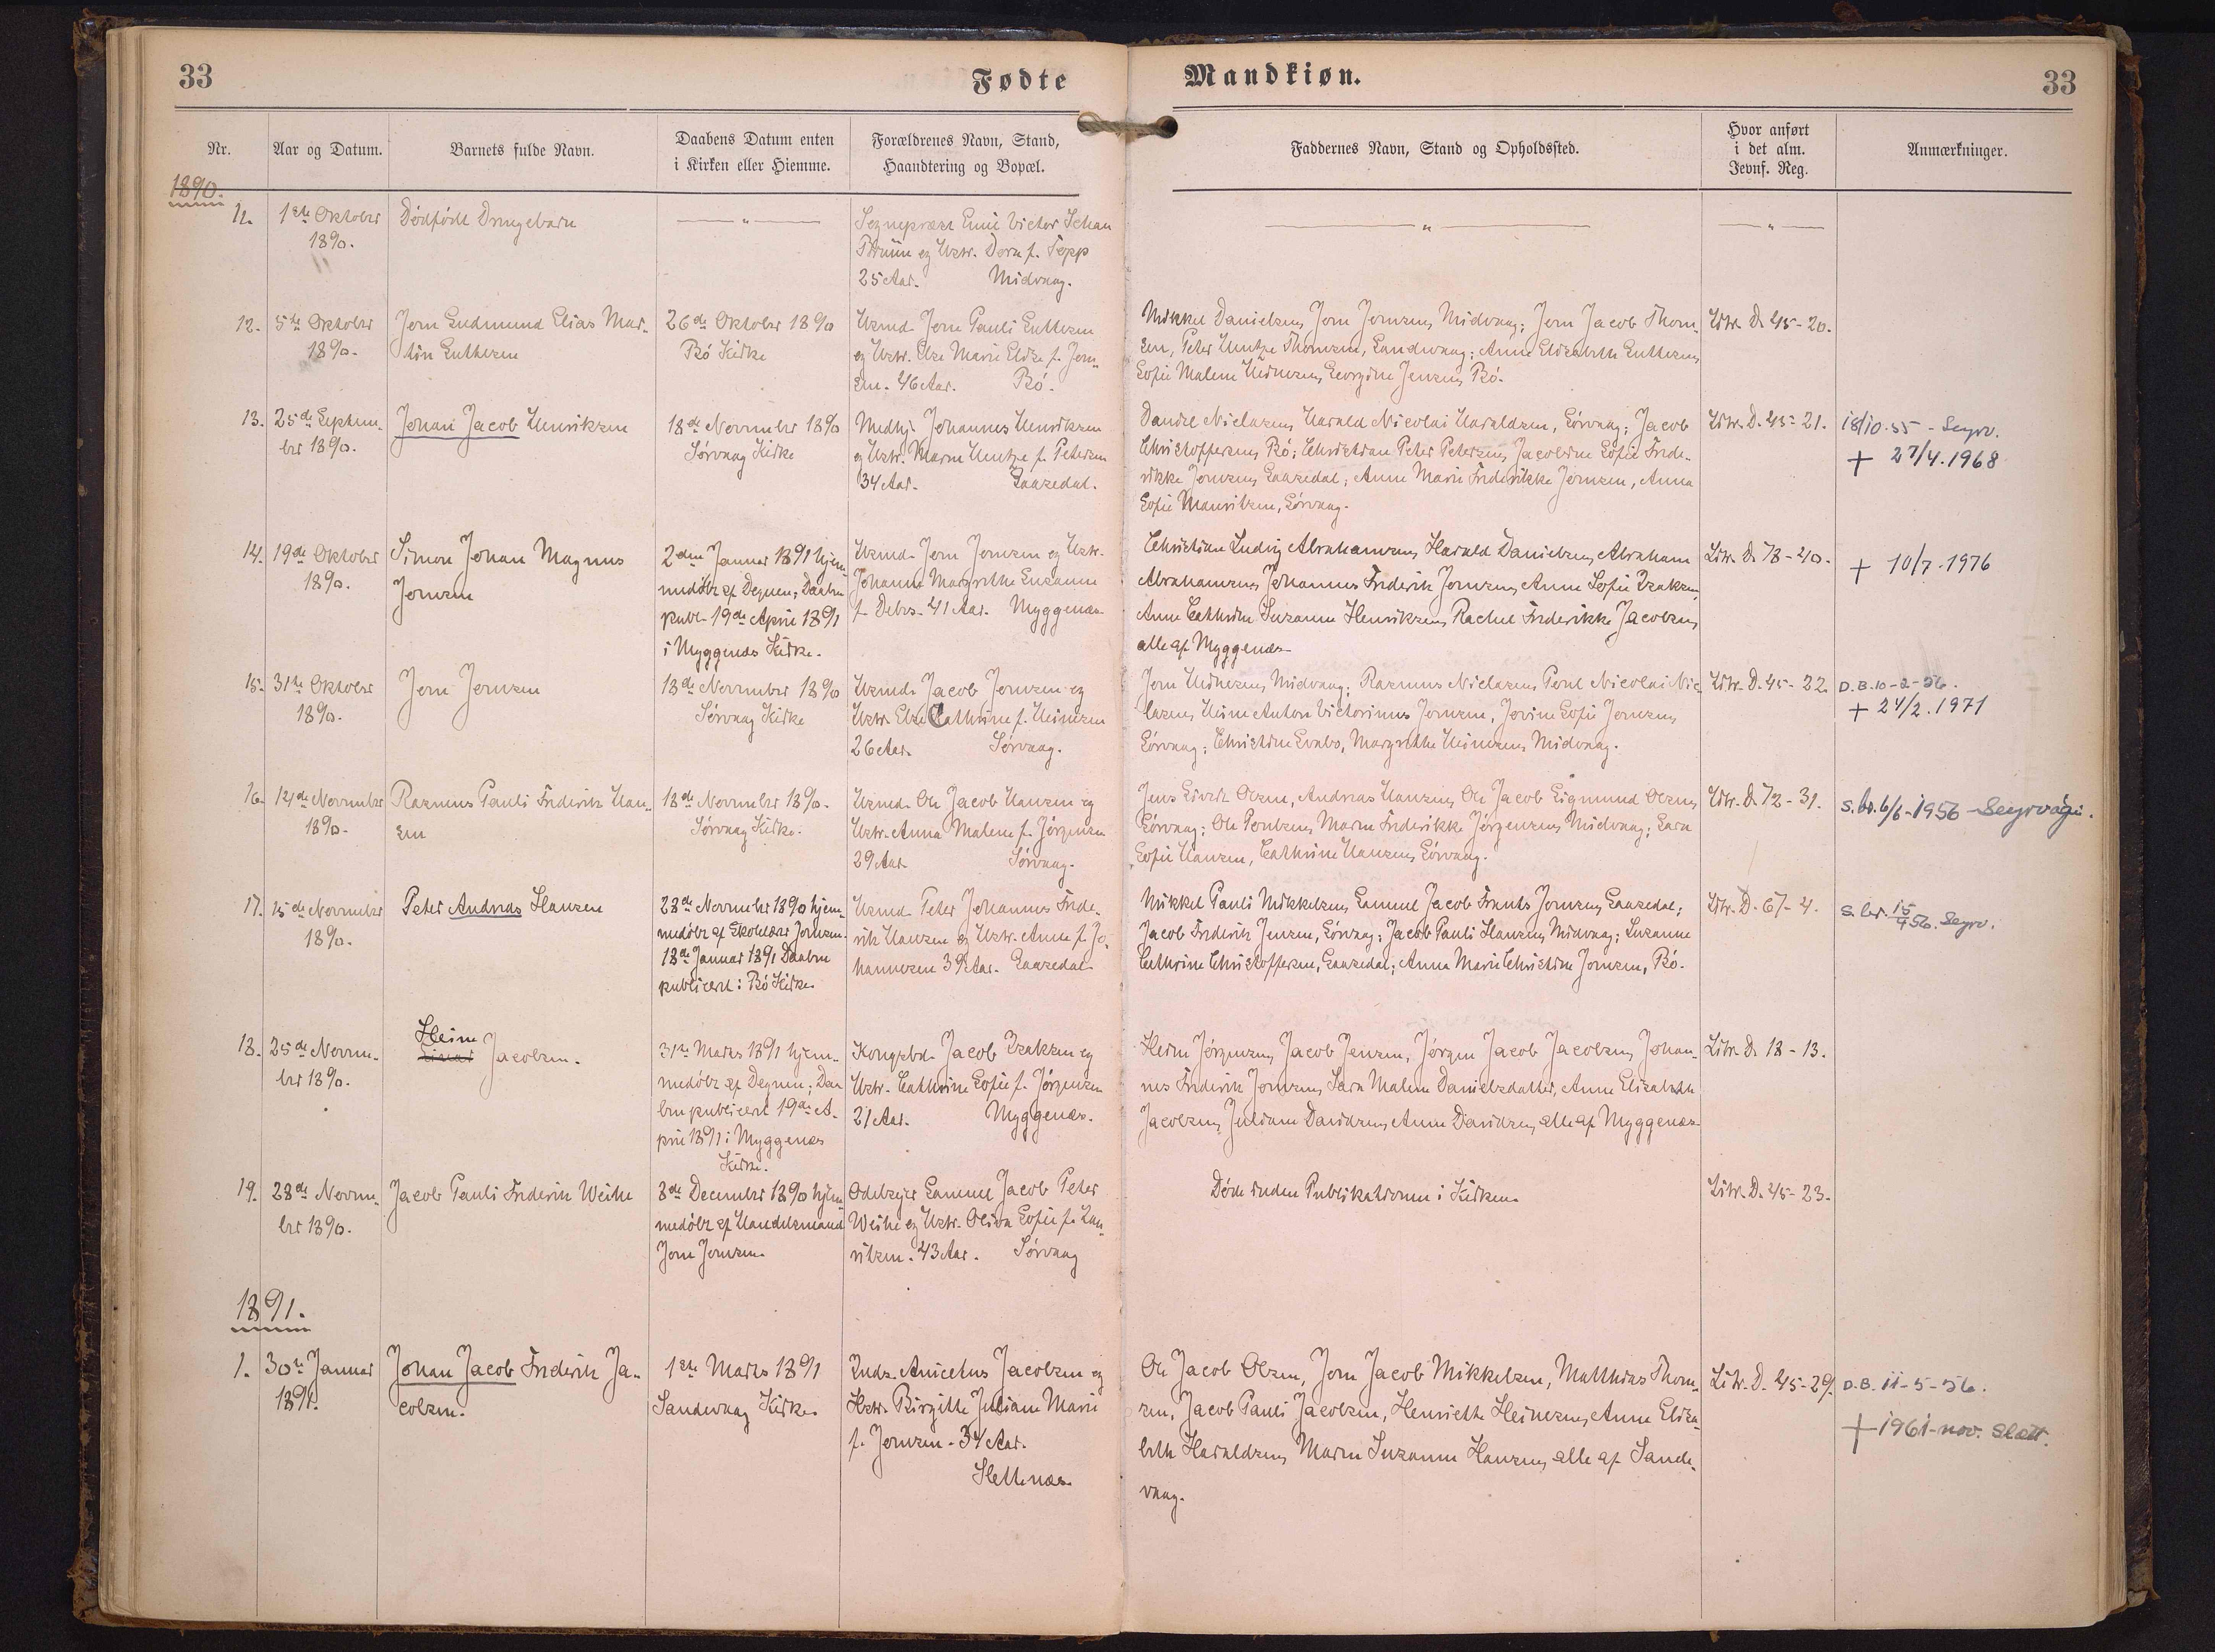 33
Fødte
Mandkiøn.
33
Nr.
Aar og Datum.
Barnets fulde Navn.
Daabens Datum enten
i Kirken eller Hiemme.
Forældrenes Navn, Stand,
Haandtering og Bopæl.
Faddernes Navn, Stand og Opholdssted.
Hvor anført
i det alm.
Jevnf. Reg.
Anmærkninger.
1890.
11.
1ste Oktober
1890.
Dødfødt Drengebarn
— " —
Sognepræst Emil Victor Johan
og Hstr. Dora f. Topp
25 Aar. Midvaag.
— " —
— " —
12.
5te Oktober
1890.
Joen Gudmund Elias Mar-
tin Guttesen
26de Oktober 1890
Bø Kirke
Hsmd. Joen Pauli Guttesen
og Hstr. Else Marie Elise f. Joen-
sen. 46 Aar. Bø.
Mikkel Danielsen, Joen Joensen, Midvaag; Joen Jacob Thom-
sen, Peter Hentze Thomsen, Sandevaag; Anne Elisabeth Guttesen,
Sofie Malene Heinesen, Georgine Jensen, Bø.
Litr. D. 45-20.
13.
25de Septem-
ber 1890.
Johan Jacob Henriksen
18de November 1890
Sørvaag Kirke
Medhj. Johannes Henriksen
og Hstr. Maren Hentze f. Petersen
34 Aar. Gaasedal.
Daniel Niclasen, Harald Nicolai Haraldsen, Sørvaag; Jacob
Christoffersen, Bø; Christian Peter Petersen, Jacobine Sofie Frede-
rikke Joensen, Gaasedal; Anne Marie Frederikke Joensen, Anna
Sofie Mauritsen, Sørvaag.
Litr. D. 45-21.
18/10.55 - Seyrv.
+ 27/4.1968
14.
19de Oktober
1890.
Simon Johan Magnus
Joensen
2den Januar 1891 hjem-
medøbt af Degnen; Daaben
publ. 19de April 1891
i Myggenæs Kirke.
Hsmd. Joen Joensen og Hstr.
Johanne Margrethe Susanne
f. Debes. 41 Aar. Myggenæs
Christian Ludvig Abrahamsen, Harald Danielsen, Abraham
Abrahamsen, Johannes Frederik Joensen, Anne Sofie Isaksen,
Anne Cathrine Susanne Henriksen, Rachel Frederikke Jacobsen,
alle af Myggenæs.
Litr. D. 78-40.
+ 10/7.1976
15.
31te Oktober
1890.
Joen Joensen
18de November 1890
Sørvaag Kirke
Hsmd. Jacob Joensen og
Hstr. Else Cathrine f. Heinesen
26 Aar. Sørvaag.
Joen Heinesen, Midvaag; Rasmus Niclasen, Poul Nicolai Nic-
lasen, Heine Anton Victorinus Joensen, Jovine Sofie Joensen,
Sørvaag; Christine Evabs, Margrethe Heinesen, Midvaag.
Litr. D. 45-22.
D.B. 10-2-56.
+ 24/2.1971
16.
14de November
1890.
Rasmus Pauli Frederik Han-
sen
18de November 1890.
Sørvaag Kirke.
Hsmd. Ole Jacob Hansen og
Hstr. Anna Malene f. Jørgensen
29 Aar Sørvaag.
Jens Sivert Olsen, Andreas Hansen, Ole Jacob Sigmund Olsen,
Sørvaag; Ole Poulsen, Maren Frederikke Jørgensen, Midvaag; Sara
Sofie Hansen, Cathrine Hansen, Sørvaag.
Litr. D. 72-31.
S.br. 6/6-1956 - Seyrvági.
17.
15de November
1890.
Peter Andreas Hansen
28de November 1890 hjem-
medøbt af Skolelærer Joensen.
18de Januar 1891 Daaben
publiceret i Bø Kirke.
Hsmd. Peter Johannes Frede-
rik Hansen og Hstr. Anne f. Jo-
hannesen 39 Aar. Gaasedal
Mikkel Pauli Mikkelsen, Samuel Jacob Frants Joensen, Gaasedal;
Jacob Frederik Jensen, Sørvaag; Jacob Pauli Hansen, Midvaag; Susanne
Cathrine Christoffersen, Gaasedal; Anna Marie Christine Joensen, Bø.
Litr. D. 67-4.
S.br. 15/4 56. Seyrv.
18.
25de Novem-
ber 1890.
Heine
Jacobsen.
31te Marts 1891 hjem-
medøbt af Degnen; Daa-
ben publiceret 19de A-
pril 1891 i Myggenæs
Kirke.
Kongsbd. Jacob Isaksen og
Hstr. Cathrine Sofie f. Jørgensen
21 Aar. Myggenæs.
Heine Jørgensen, Jacob Jensen, Jørgen Jacob Jacobsen, Johan-
nes Frederik Joensen, Sara Malene Danielsdatter, Anne Elisabeth
Jacobsen, Juliane Davidsen, Anne Davidsen, alle af Myggenæs.
Litr. D. 18-13.
19.
28de Novem-
ber 1890.
Jacob Pauli Frederik Weihe
8de December 1890 hjem-
medøbt af Handelsmand
Joen Joensen.
Odelsejer Samuel Jacob Peter
Weihe og Hstr. Olivia Sofie f. Lau-
ritsen. 43 Aar. Sørvaag
Døde inden Publikationen i Kirken.
Litr. D. 45-23.
1891.
1.
30te Januar
1891.
Johan Jacob Frederik Ja-
cobsen.
1ste Marts 1891
Sandevaag Kirke.
Inds. Anicetus Jacobsen og
Hstr. Birgitte Juliane Marie
f. Joensen. 34 Aar.
Slettenæs.
Ole Jacob Olsen, Joen Jacob Mikkelsen, Matthias Thom-
sen, Jacob Pauli Jacobsen, Henriette Heinesen, Anne Elisa-
beth Haraldsen, Maren Susanne Hansen, alle af Sande-
vaag.
Litr. D. 45-29.
D.B. 11-5-56.
+ 1961-nov. Slætt.